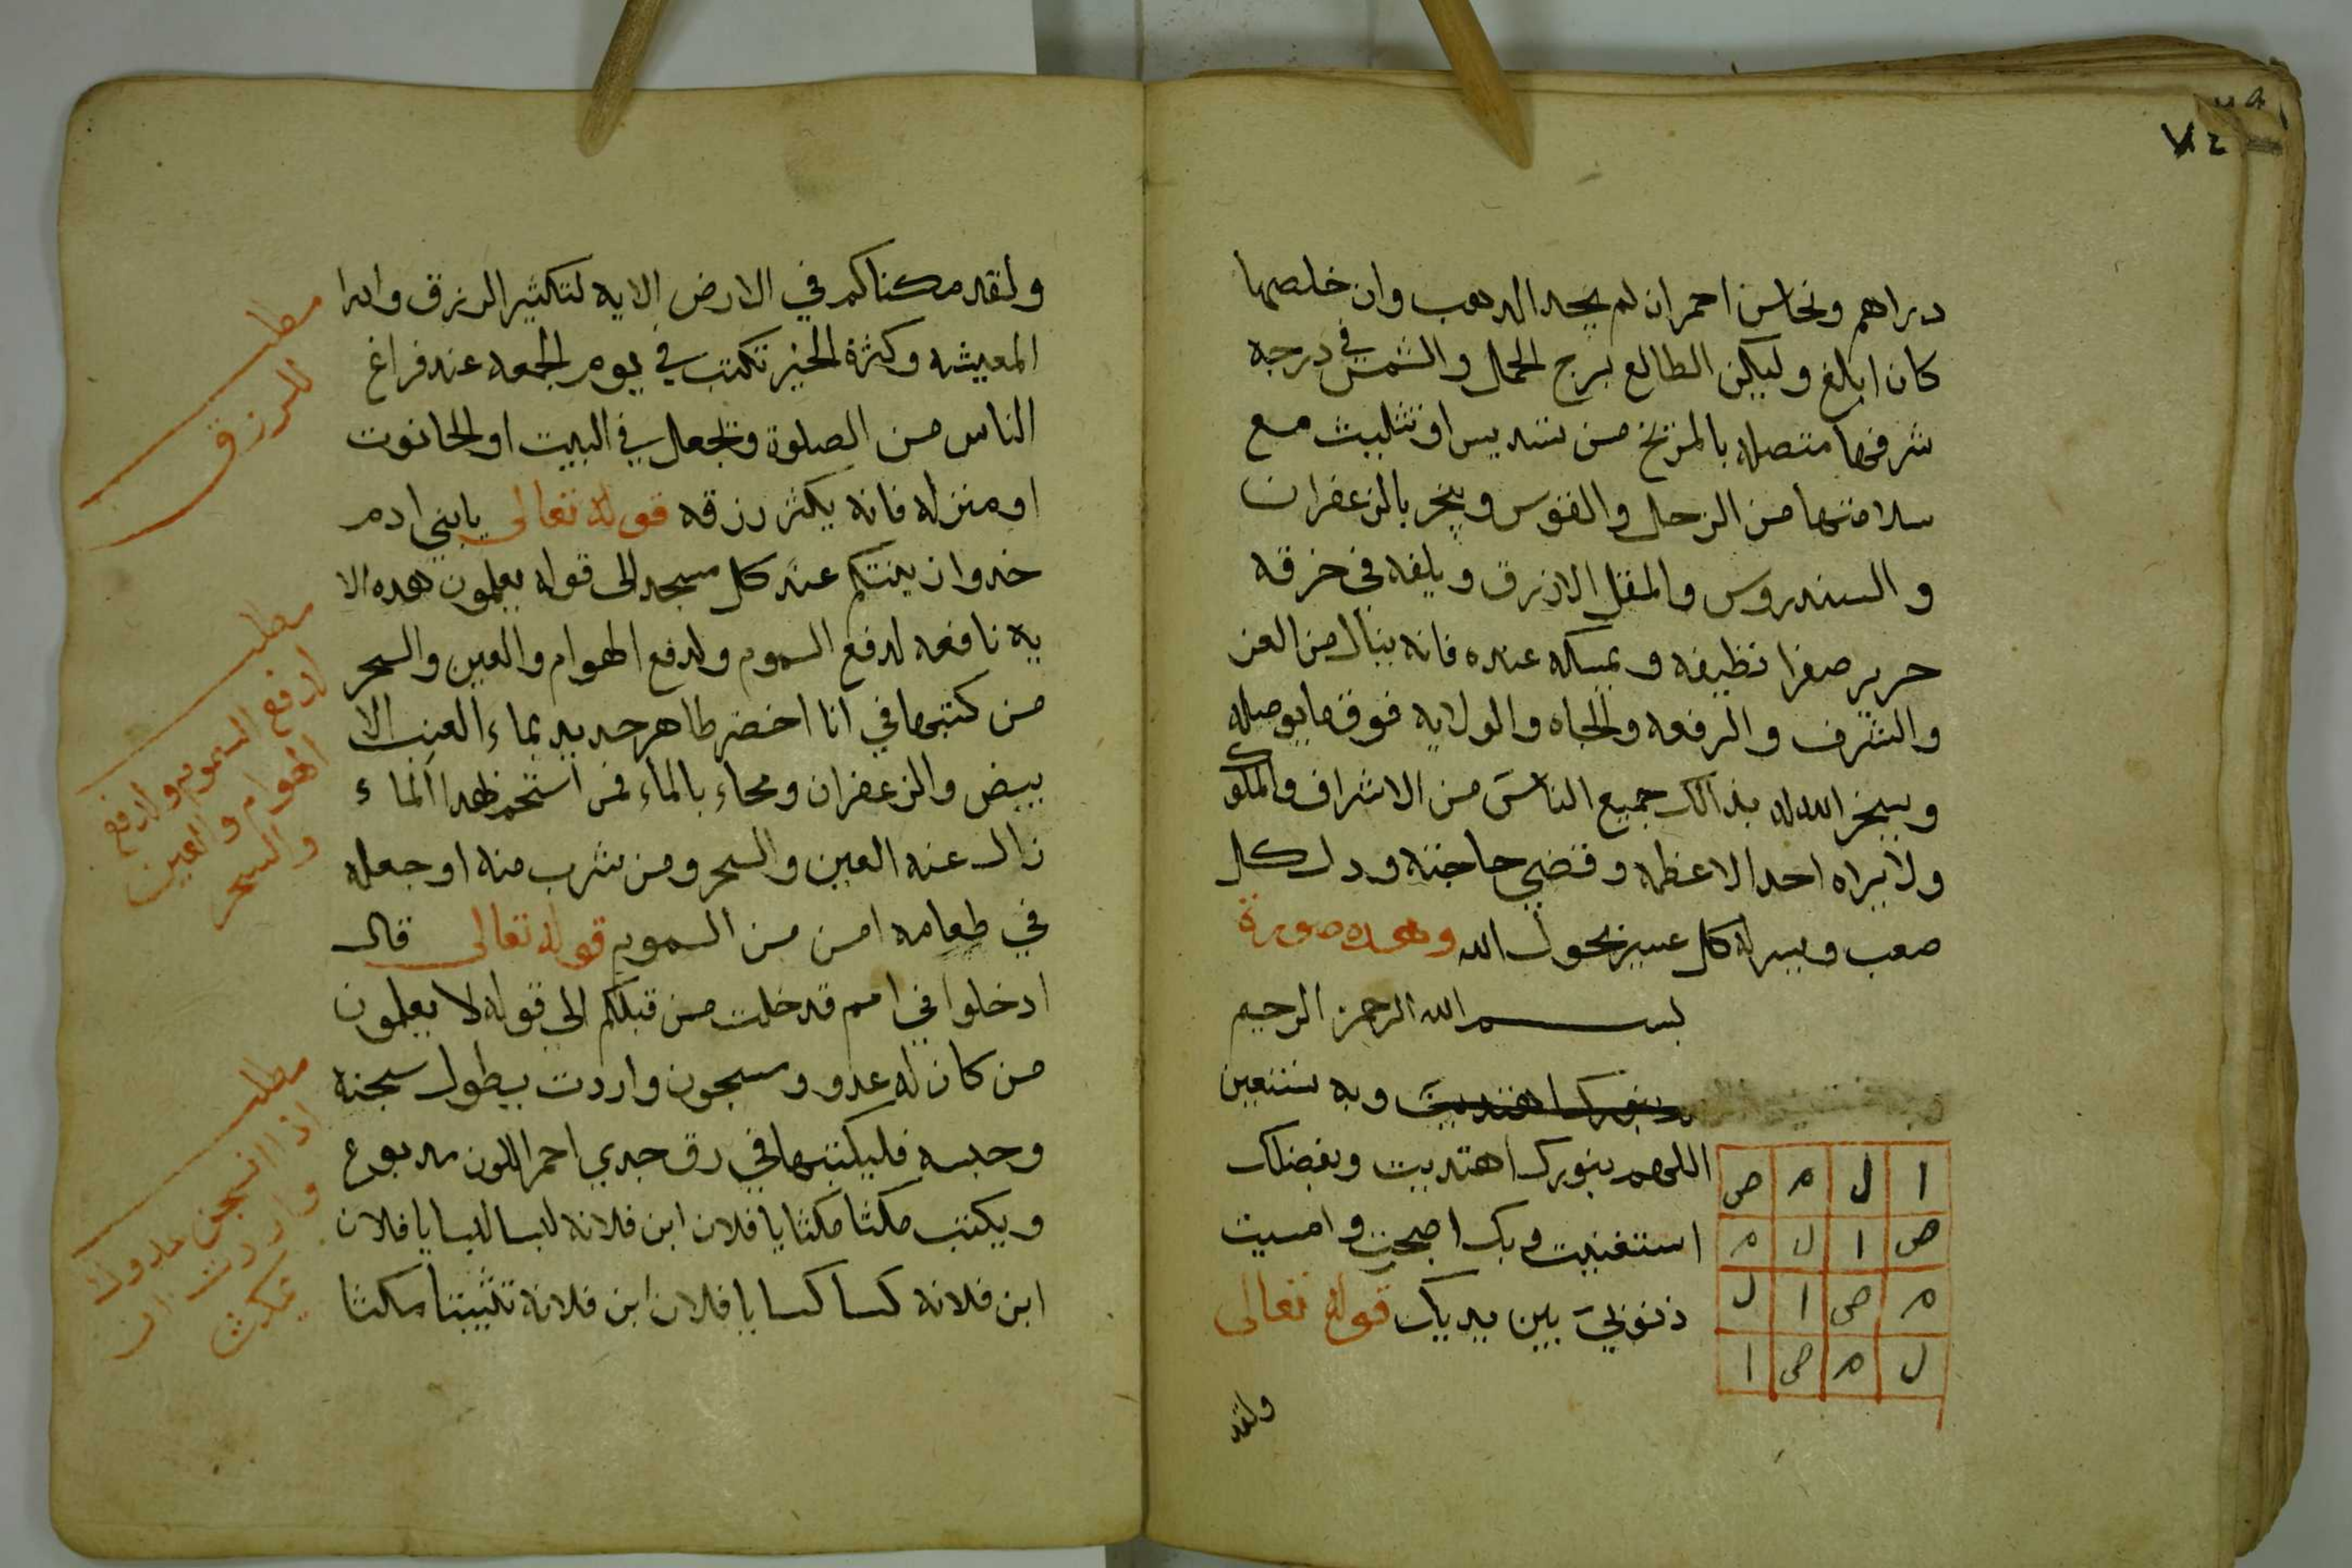 ٧٤
دراهم ونحاس احمر ان لم يجد الدهب وان خلصها
كان ابلغ وليكن الطالع برج الحمل والشمس في درجه
شرفها متصله بالمريخ من تسديس او تثليث مع
سلامتها من الزحل والقوس ويبخر بالزعفران
والسندروس والمقل الازرق ويلفه في خرقه
حرير صفرا نظيفه ويمسكه عنده فانه ينال من العز
والشرف والرفعه والجاه والولايه فوق ما يوصله
ويسخر الله له بذالك جميع الناس من الاشراف والملوك
ولا يراه احد الا عظمه وقضي حاجته ودل كل
صعب ويسر له كل عسير بحول الله وهده صورة
بسم الله الرحمن الرحيم
بنورك اهتديت وبه نستعين
اللهم بنورك اهتديت وبفضلك
استغنيت وبك اصبحت وامسيت
ذنوبي بين يديك قوله تعالى
ا ل م ص
ص ا ل م
م ص ا ل
ل م ص ا
ولقد
ولقد مكناكم في الارض الايه لتكثير الرزق وادرا
المعيشه وكثرة الخير تكتب في يوم الجمعه عند فراغ
الناس من الصلوة وتجعل في البيت او الحانوت
او منزله فانه يكثر رزقه قوله تعالى يا بني ادم
خدوا زينتكم عند كل مسجد الى قوله يعلمون هده الا
يه نافعه لدفع السموم ولدفع الهوام والعين والسحر
من كتبها في انا اخضر طاهر جديد بماء العنب الا
بيض والزعفران ومحاء بالماء فمن استحم بهدا الماء
زال عنه العين والسحر ومن شرب منه او جعله
في طعامه امن من السموم قوله تعالى قال
ادخلوا في امم قد خلت من قبلكم الي قوله لا يعلمون
من كان له عدو ومسجون واردت يطول سجنه
وحبسه فليكتبها في رق جدي احمر اللون مدبوع
ويكتب مكثا مكثا يا فلان ابن فلانه لبسا لبسا يا فلان
ابن فلانه كسا كسا يا فلان ابن فلانة تثبيتا مكثا
مطلب
للرزق
مطلب
لدفع السموم ولدفع
الهوام والعين
والسحر
مطلب
اذا انسجن عدوك
واردت ان
يمكث